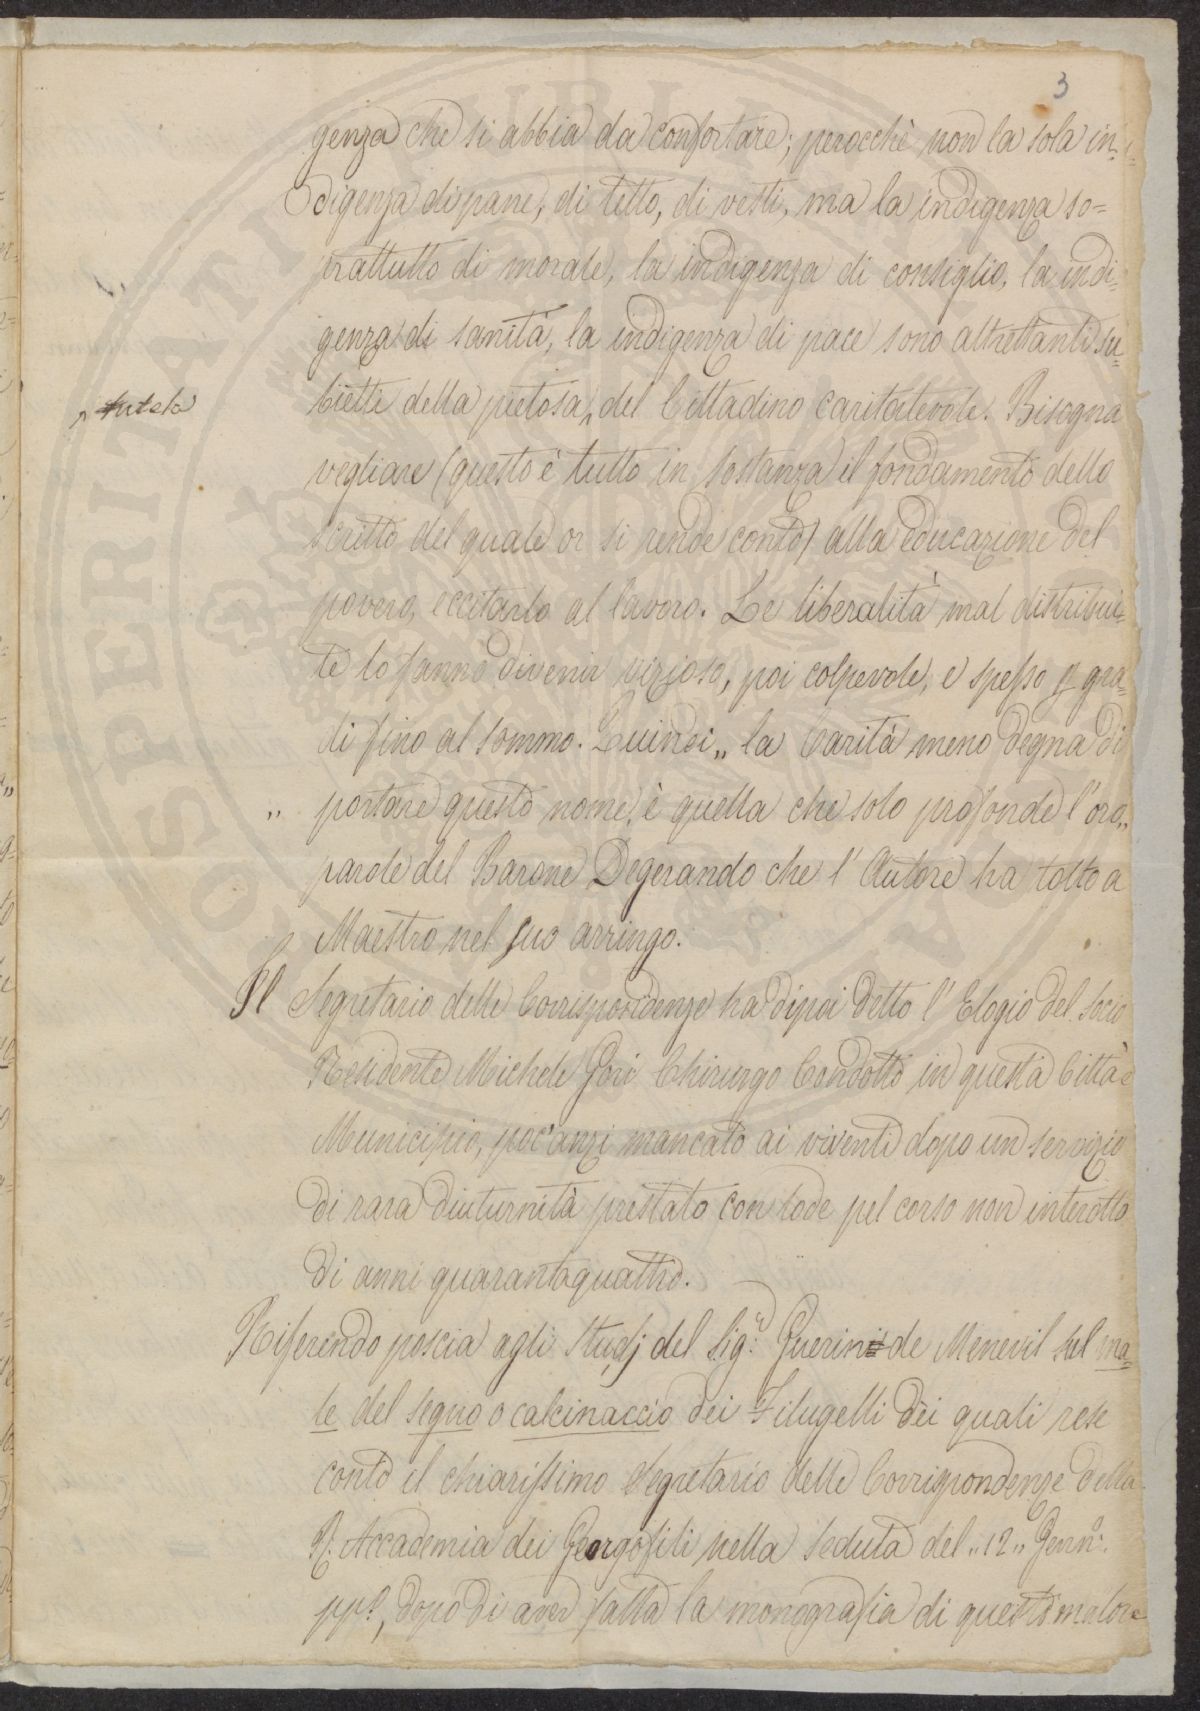 3
genza che si abbia da confortare; perocchè non la sola in=
digenza di pane, di tetto, di vesti, ma la indigenza so=
prattutto di morale, la indigenza di consiglio, la indi=
genza di sanità, la indigenza di pace sono altrettanti su=
tutela
bietti della pietosa, del Cittadino caritatevole. Bisogna
vegliare (questo è tutto in sostanza il fondamento dello
scritto del quale or si rende conto) alla educazione del
povero, eccitarlo al lavoro. Le liberalità mal distribui=
te lo fanno divenir vizioso, poi colpevole, e spesso p gra=
di fino al sommo. Quindi „ la Carità meno degna di
„ portare questo nome, è quella che solo profonde l'oro„
parole del Barone Degerando che l'Autore ha tolto a
Maestro nel suo arringo.
Il Segretario delle Corrispondenze ha dipoi detto l'Elogio del Socio
Residente Michele Gori Chirurgo Condotto in questa Città e
Municipio, poc'anzi mancato ai viventi dopo un servizio
di rara diuturnità prestato con lode pel corso non interotto
di anni quarantaquattro.
Riferendo poscia agli Studj del Sig.r Guerin de Menevil sul ma=
le del segno o calcinaccio dei Filugelli dei quali rese
conto il chiarissimo Segretario delle Corrispondenze della
R. Accademia dei Georgofili nella seduta del „12„ Genn:o
pp.o, dopo di aver fatta la monografia di questo malore
SOSPERITATI PUBLICAE AUGENDAE